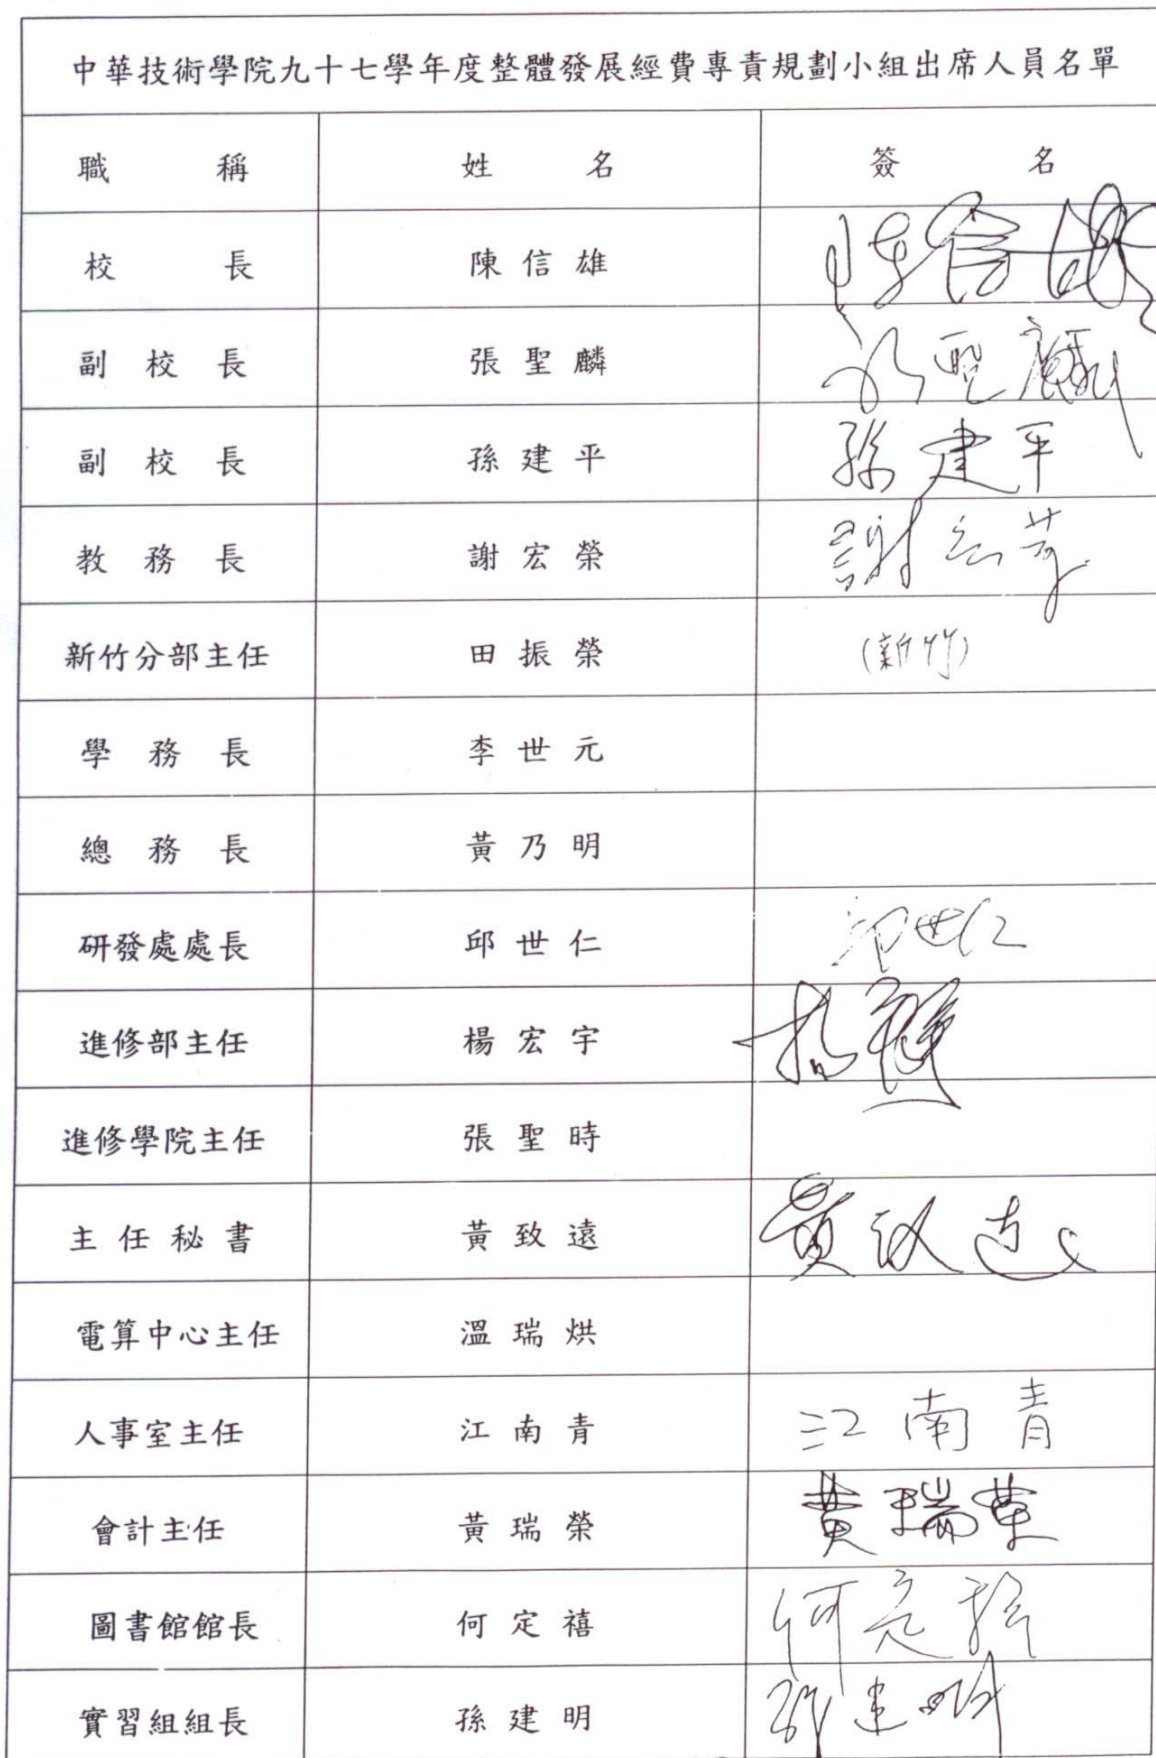 中華技術學院九十七學年度整體發展經費專責規劃小組出席人員名單
職稱 姓名 簽名
校長 陳信雄 陳信雄
副校長 張聖麟 張聖麟
副校長 孫建平 孫建平
教務長 謝宏榮 謝宏榮
新竹分部主任 田振榮 (新竹)
學務長 李世元
總務長 黃乃明
研發處處長 邱世仁 邱世仁
進修部主任 楊宏宇
進修學院主任 張聖時
主任秘書 黃致遠 黃致遠
電算中心主任 溫瑞烘
人事室主任 江南青 江南青
會計主任 黃瑞榮 黃瑞榮
圖書館館長 何定禧 何定禧
實習組組長 孫建明 孫建明